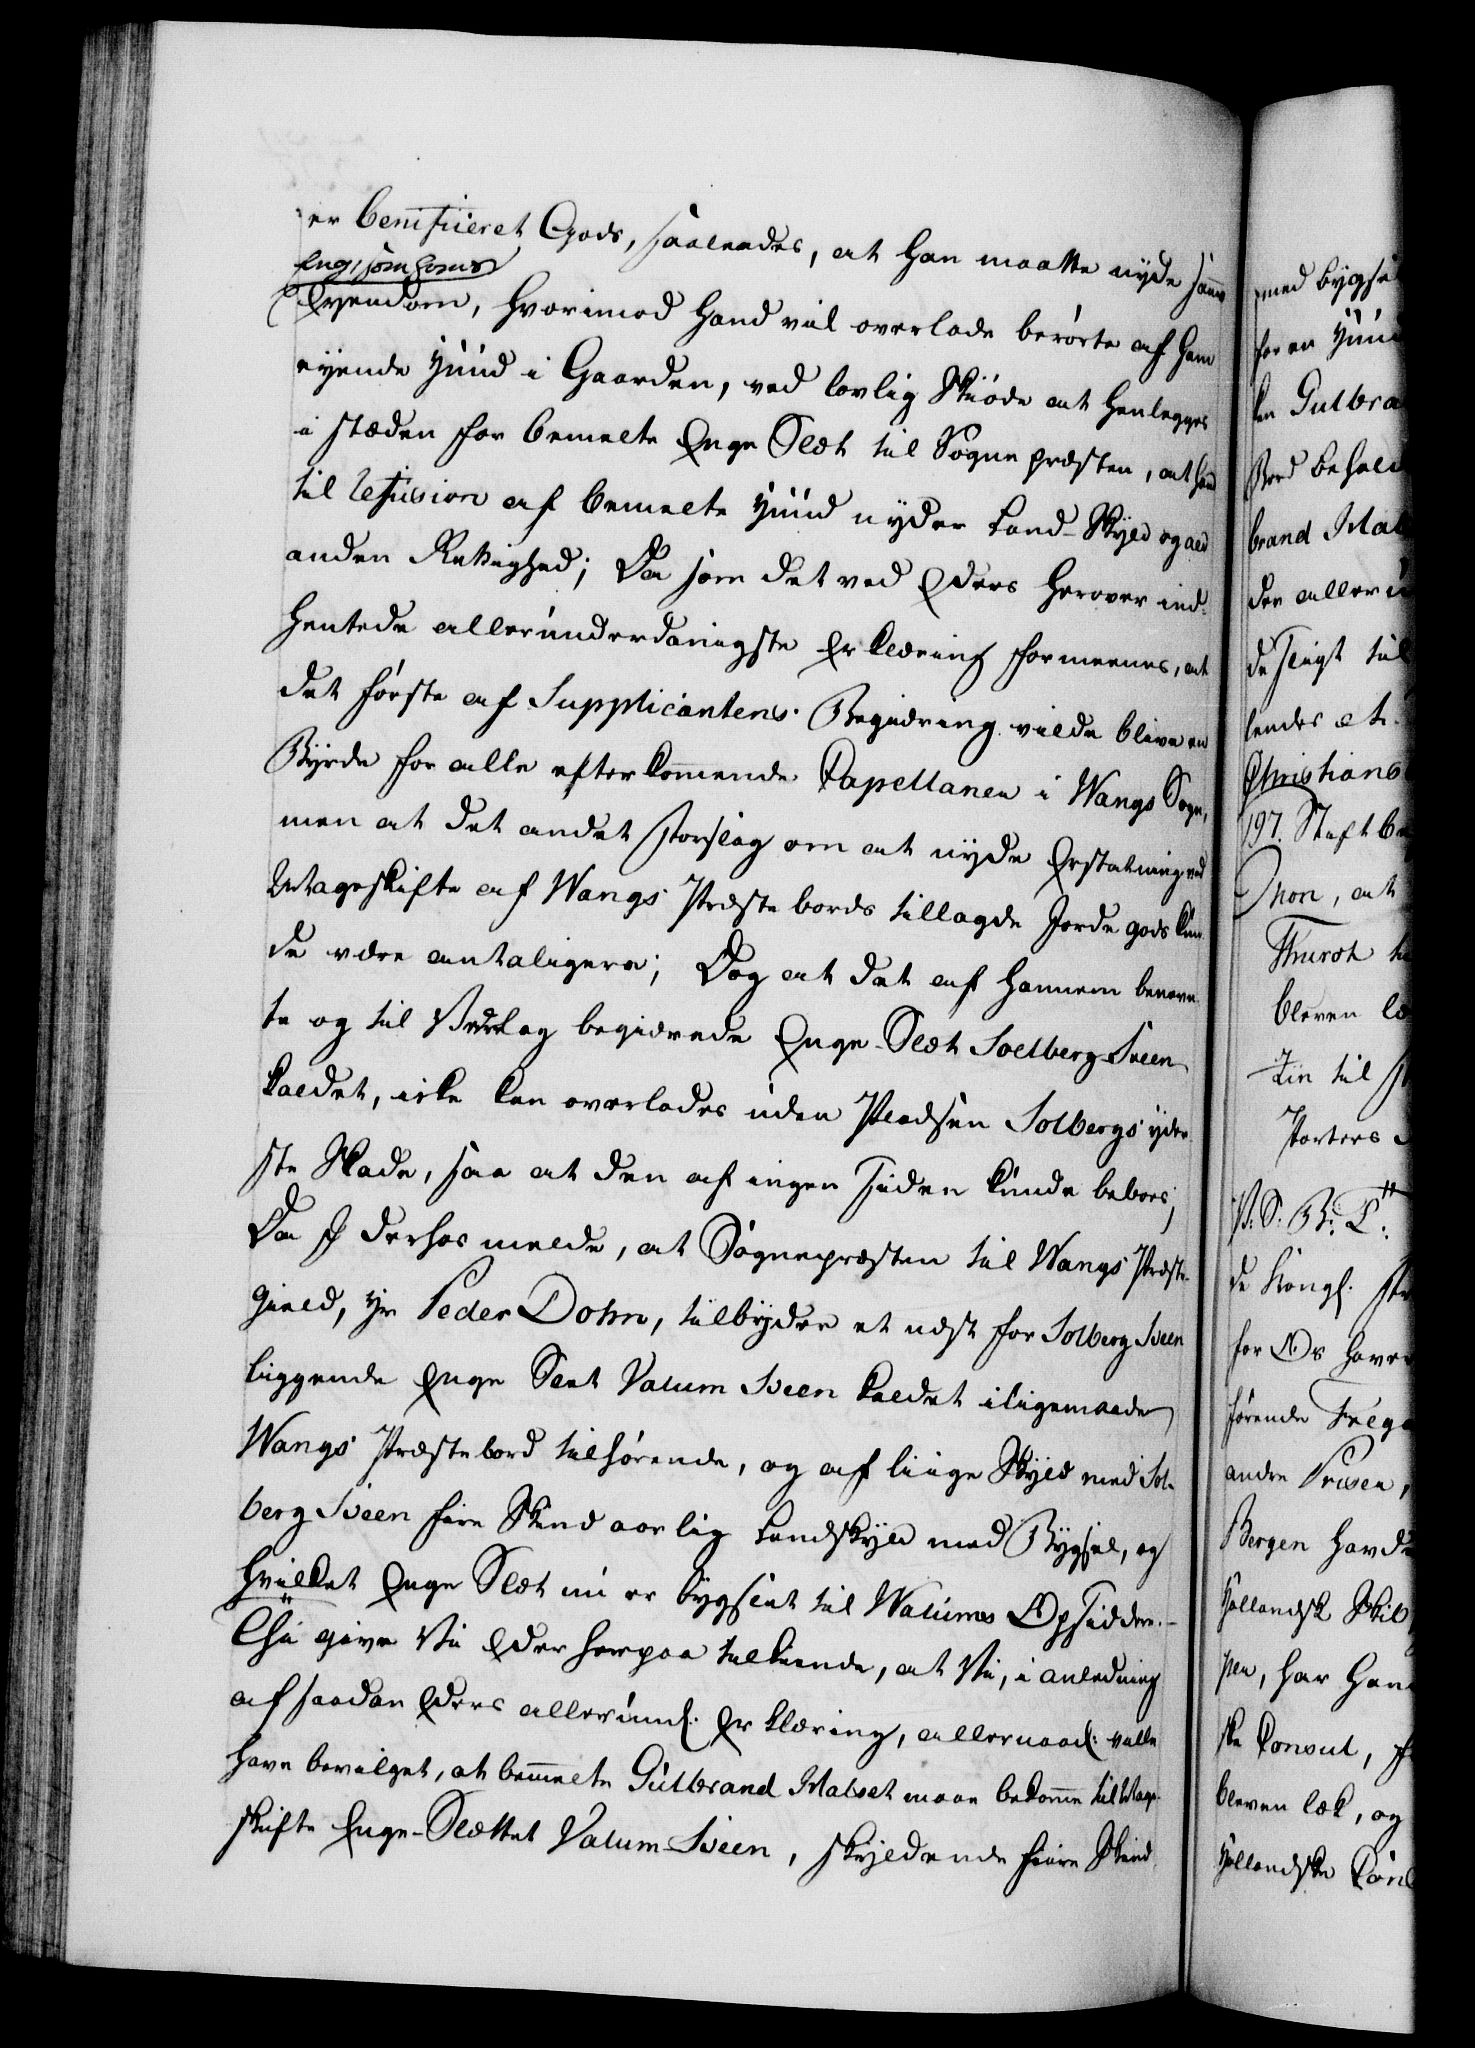 er benificeret Gods, saaledes, at han maatte nyde samme
Eng, som hans
Eyendom, hvorimod hand vil overlade berørte af ham
eyende Huud i Gaarden, ved lovlig Skiøde at henlegges
i stæden for bemelte Enge Slet til Sogne præsten, at hand
til refusion af bemelte Huud nyder Land-Skyld og ald
anden Rettighed; Da som det ved Eders herover ind-
hentede allerunderdanigste Erklæring formeenes, at
det første af Supplicantens Begiæring vilde blive en
Byrde for alle efterkommende Capellaner i Wangs Sogn,
men at det andet Forslag om at nyde Erstatning ved
Mageskifte af Wangs Præstebords tillagde Jorde gods kun-
de være antageligere; Dog at det af hannem benevn-
te og til Vederlag begierede Enge-Slet Soelberg-Sveen
kaldet, icke kan overlades uden Pladsen Solbergs yder-
ste Skade, saa at den af ingen siden kunde beboes;
Da I derhos melde, at Sognepræsten til Wangs Præste-
gield, Hr Peder Dohn, tilbyder et næst for Solberg Sveen
liggende Enge Slet Valum Sveen kaldet iligemaade
Wangs Præstebord tilhørende, og af liige Skyld med Sol-
berg Sveen fire Skind aarlig Landskyld med Bygsel, og
hvilket Enge Slet nu er bygslet til Walums Opsidder.-
Thi give Vi Eder herpaa tilkiende, at Vi, i anledning
af saadan Eders allerund: Erklæring, allernaad: ville
have bevilget, at bemelte Gulbrand Malset maae bekomme til Mage-
skifte Enge-Slettet Valum-Sveen, skyldende fiire Skind

med bygsel
for en Huud
brand Mal
Christians
197.
bleven
Porters
P. S.
for Os have
andre Prisen,
Bergen havde
Hollandsk Skib
pen, har han
ske Consul,
bleven læk, og
Hollandske